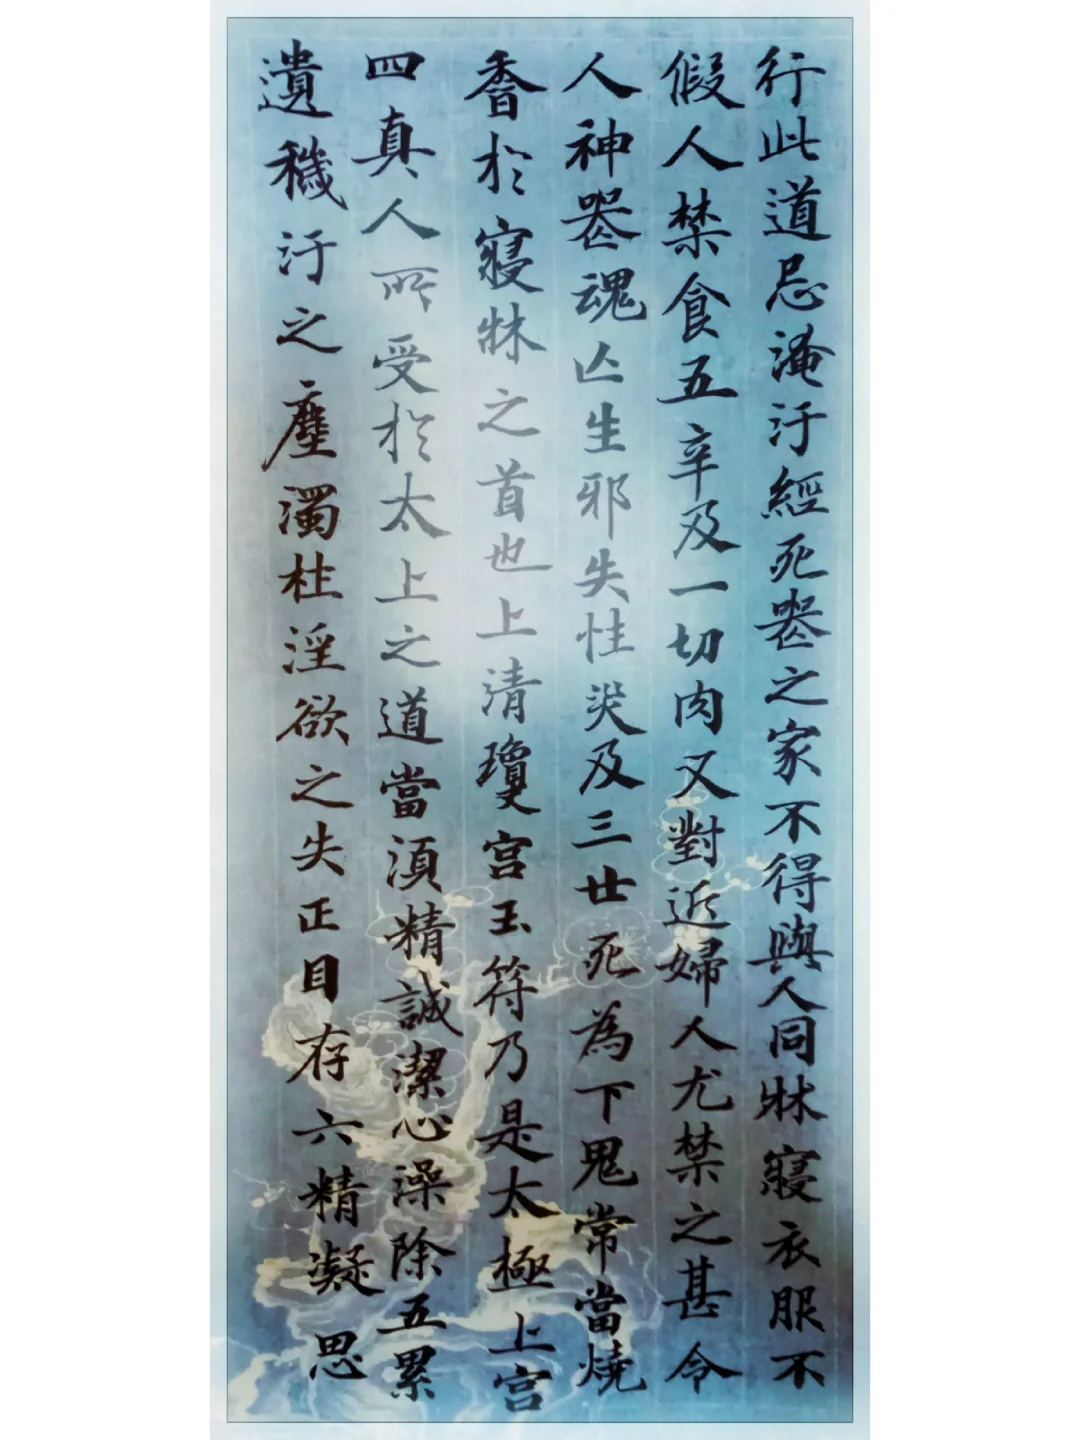 行此道忌淹汙經死喪之家不得與人同牀寢衣服不
假人禁食五辛及一切肉又對近婦人尤禁之甚令
人神喪魂亡生邪失性災及三世死為下鬼常當燒
香於寢牀之首也上清瓊宮玉符乃是太極上宮
四真人所受於太上之道當須精誠潔心澡除五累
遺穢汙之塵濁杜淫欲之失正目存六精凝思